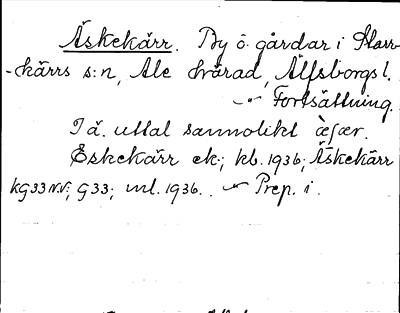 Äskekärr. By o. gårdar i Starr-
-kärrs s:n, Ale härad, Älfsborgs l.
-"- Fortsättning.
I ä. uttal sannolikt
Eskekärr ek.; kb. 1936; Äskekärr
kG33 N.V.; G33; ml. 1936. -"- Prep. i.